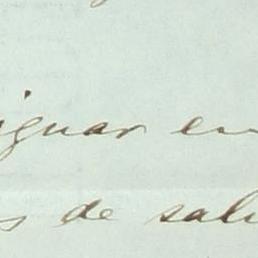 ignar en
s de salu